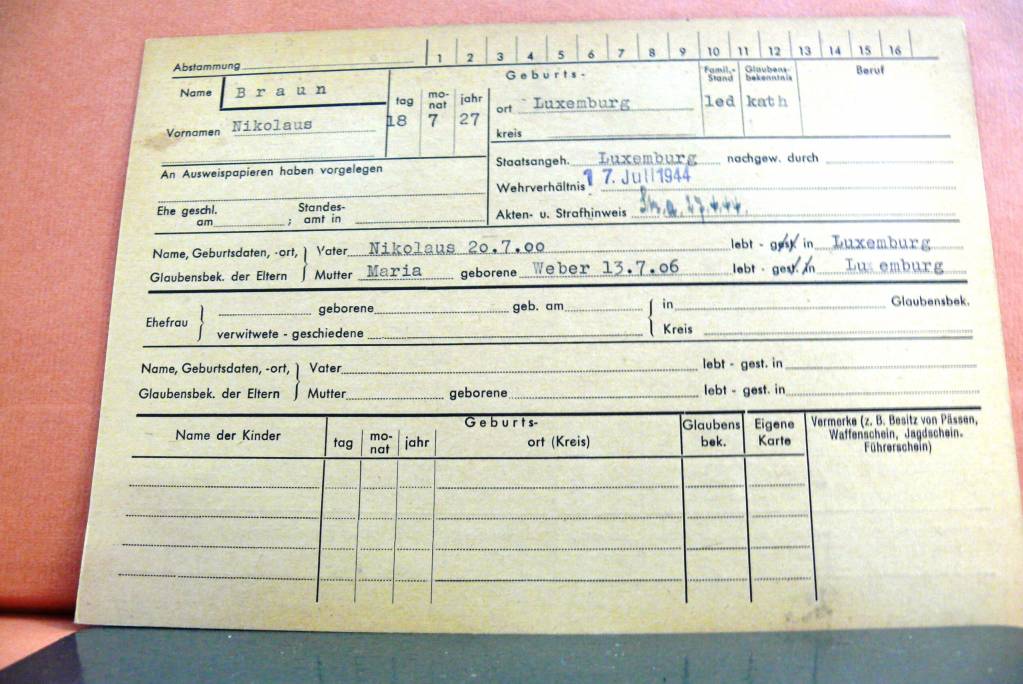 Abstammung 1 2 3 4 5 6 7 8 9 10 11 12 13 14 15 16
Name Braun tag mo-nat jahr Geburts- Famil.-Stand Glaubens-bekenntnis Beruf
18 7 27 ort Luxemburg led kath
Vornamen Nikolaus kreis
An Ausweispapieren haben vorgelegen Staatsangeh. Luxemburg nachgew. durch
Wehrverhältnis 17. Juli 1944
Ehe geschl. am ; Standes-amt in Akten- u. Strafhinweis
Name, Geburtsdaten, -ort, Vater Nikolaus 20.7.00 lebt - gest. in Luxemburg
Glaubensbek. der Eltern Mutter Maria geborene Weber 13.7.06 lebt - gest. in Lu emburg
Ehefrau geborene geb. am in Glaubensbek.
verwitwete - geschiedene Kreis
Name, Geburtsdaten, -ort, Vater lebt - gest. in
Glaubensbek. der Eltern Mutter geborene lebt - gest. in
Name der Kinder Geburts- Glaubens bek. Eigene Karte Vermerke (z. B. Besitz von Pässen,
tag mo-nat jahr ort (Kreis) Waffenschein, Jagdschein.
Führerschein)